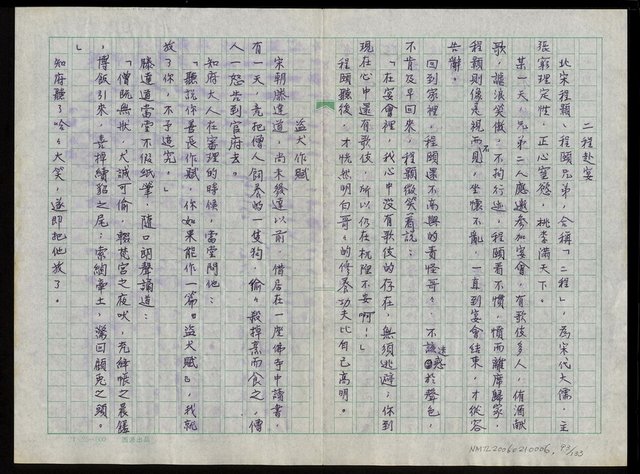 二程赴宴
北宋程顥、程頤兄弟，合稱「二程」，為宋代大儒，主
張窮理定性，正心窒慾，桃李滿天下。
某一天，兄弟二人應邀參加宴會，有歌伎多人，侑酒献
歌，謔浪笑傲，不拘行迹，程頤看不慣，憤而離席歸家，
程顥則像是視而不見，坐懷不亂，一直到宴會結束，才從容
告辭。
回到家裡，程頤還不高興的責怪哥々，不該迷惑於聲色，
不肯及早回來，程顥微笑著說：
「在宴會裡，我心中沒有歌伎的存在，無須逃避；你到
現在心中還有歌伎，所以仍在抗拒不要啊！」
程頤聽後，才恍然明白哥々的修養功夫比自己高明。
盜犬作賦
宋朝滕達道，尚未發達以前，借居在一座佛寺中讀書，
有一天，竟把僧人飼養的一隻狗，偷々殺掉烹而食之，僧
人一怒告到官府去。
知府大人在審理的時候，當堂問他：
「聽說你善長作賦，你如果能作一篇『盜犬賦』，我就
放了你，不予追究。」
滕達道當堂不假紙筆，隨口朗聲誦道：
「僧既無狀，犬誠可偷，輟梵宮之夜吠，充絳帳之晨饈
，摶飯引來，喜掉續貂之尾；索綯牽去，驚回顧兎之頭。
」
知府聽了哈々大笑，遂即把他放了。
NMTL20060210006, 93/183